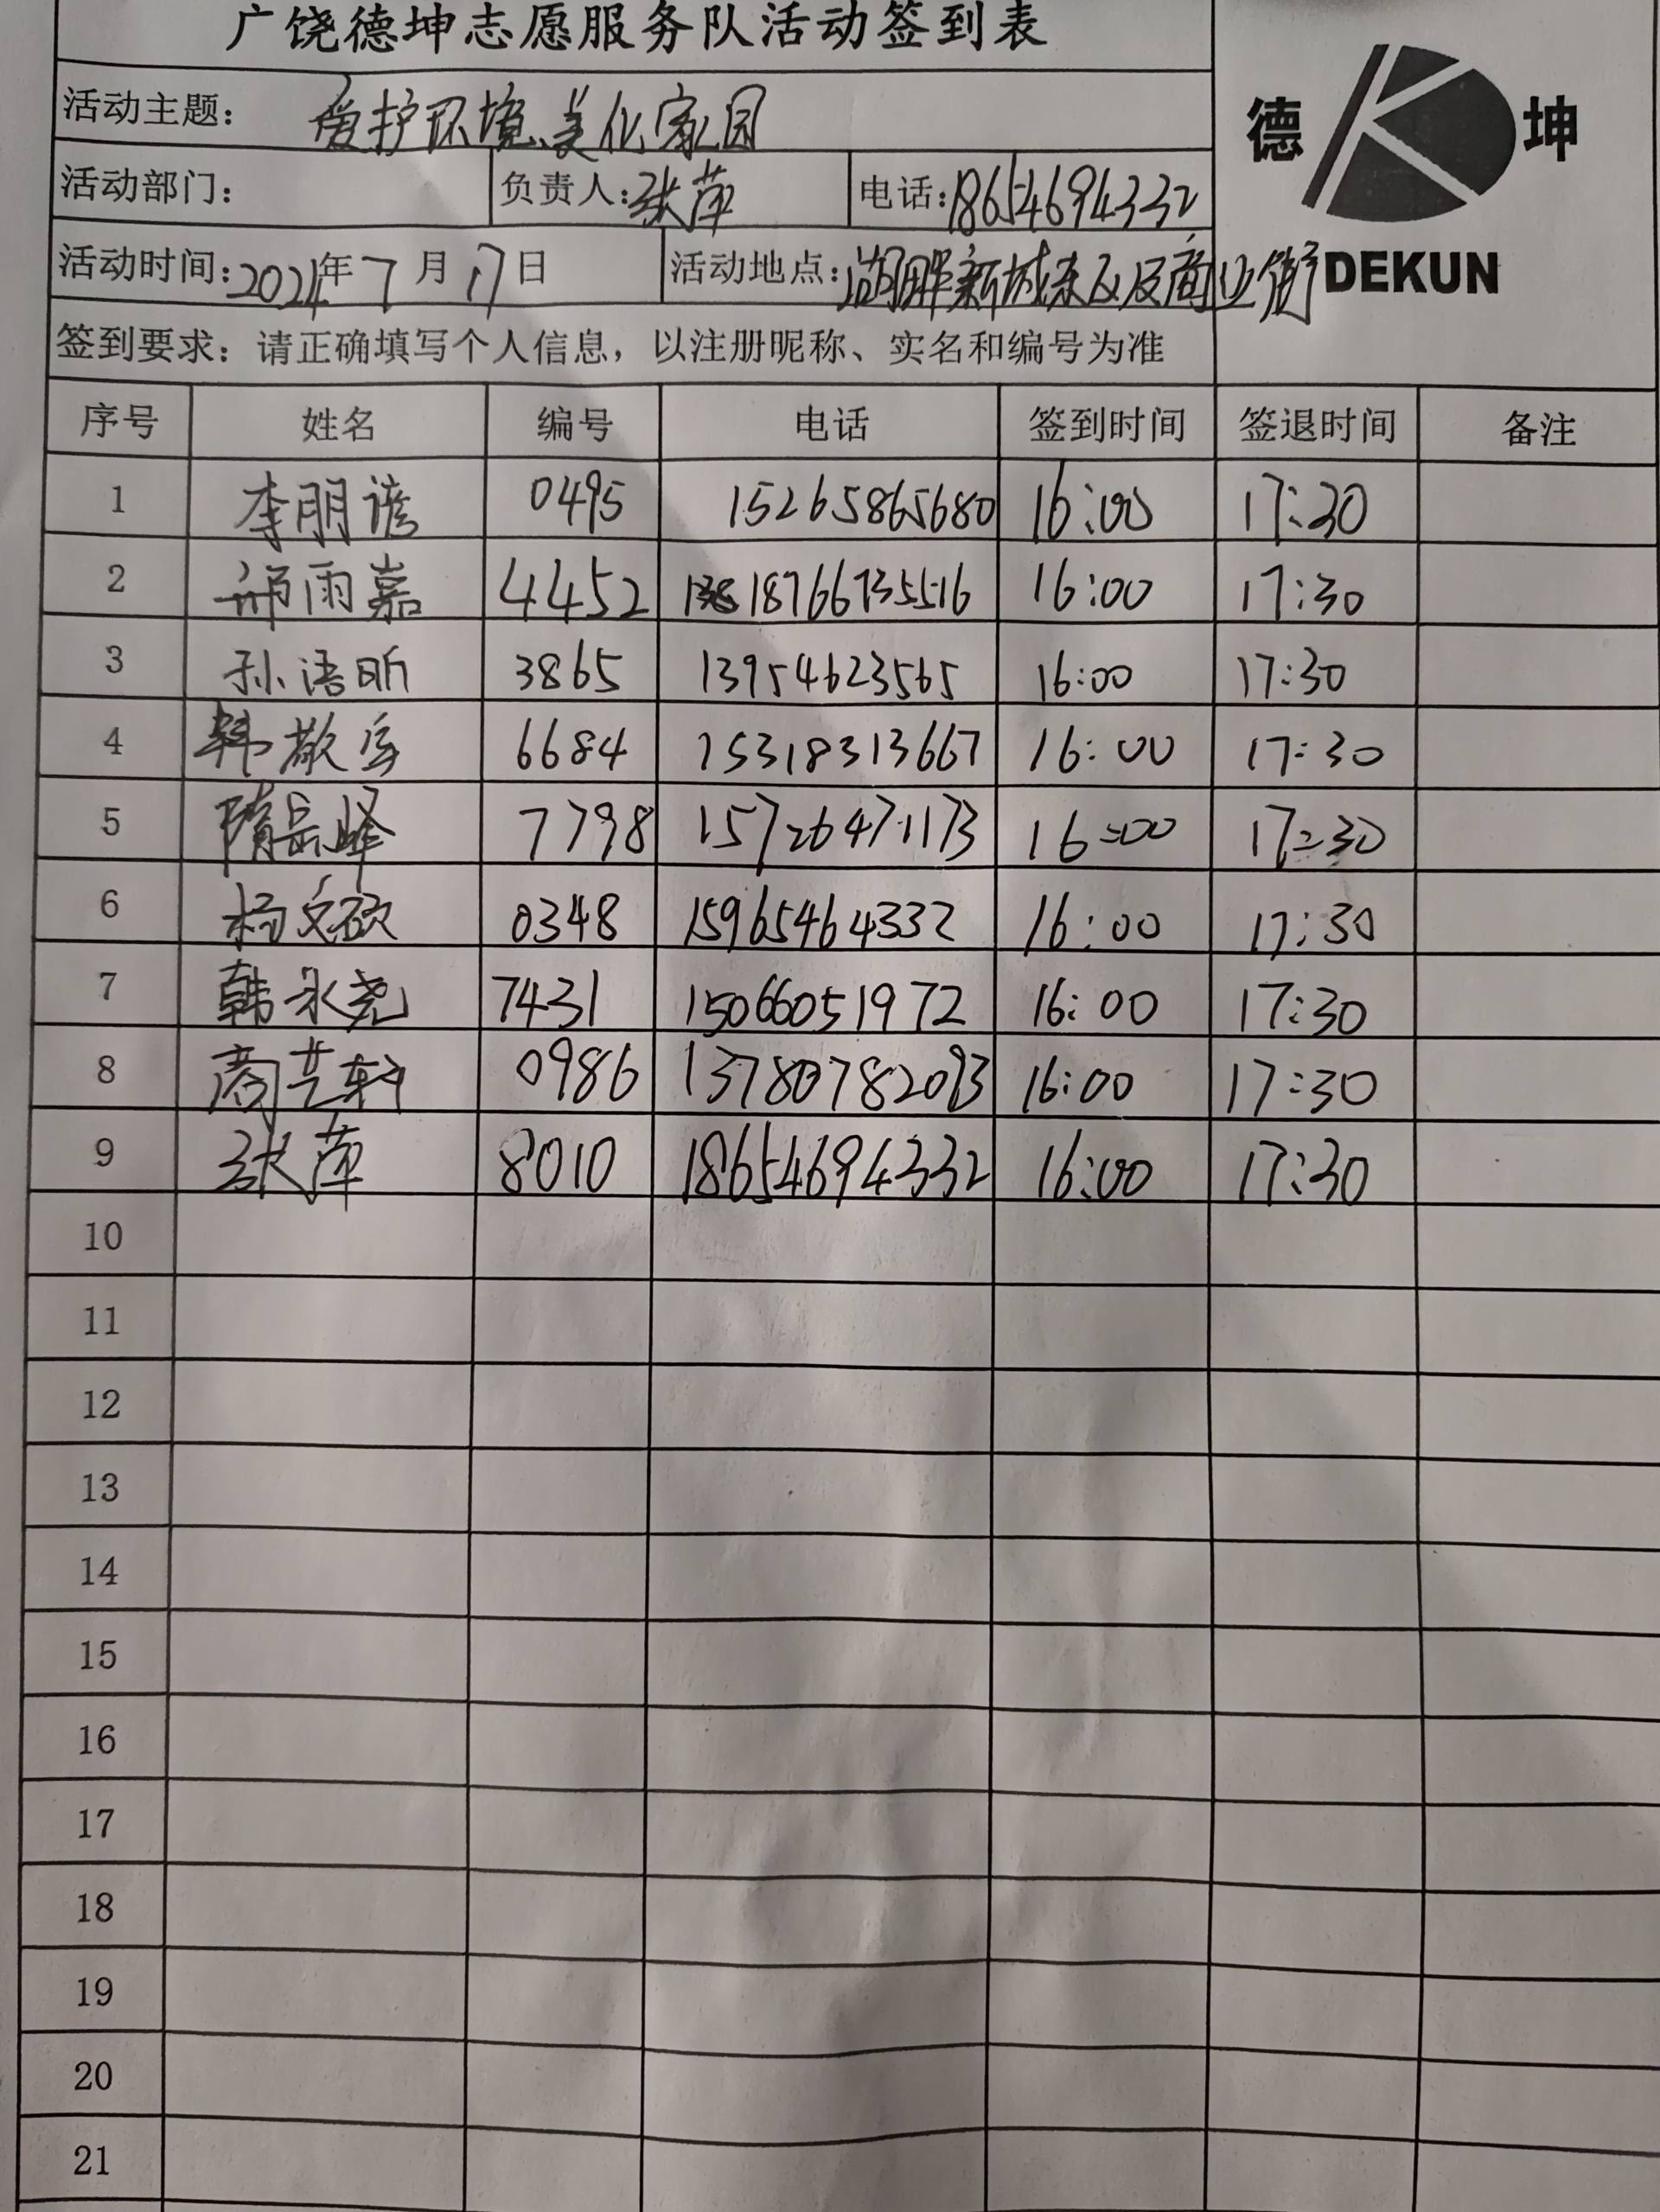 广饶德坤志愿服务队活动签到表
活动主题： 爱护环境、美化家园
德 坤
活动部门： 负责人：张萍 电话：18654694332
活动时间：2024年7月17日 活动地点：湖畔新城东区及商业街
DEKUN
签到要求：请正确填写个人信息，以注册昵称、实名和编号为准
序号 姓名 编号 电话 签到时间 签退时间 备注
1 李朋谚 0495 15265865680 16:00 17:30
2 雨嘉 4452 18766735516 16:00 17:30
3 孙语昕 3865 13954623565 16:00 17:30
4 韩敬 6684 15318313667 16:00 17:30
5 隋岳峰 7798 15726471173 16:00 17:30
6 杨文硕 0348 15965464332 16:00 17:30
7 韩永尧 7431 15066051972 16:00 17:30
8 商艺轩 0986 13780782093 16:00 17:30
9 张萍 8010 18654694332 16:00 17:30
10
11
12
13
14
15
16
17
18
19
20
21